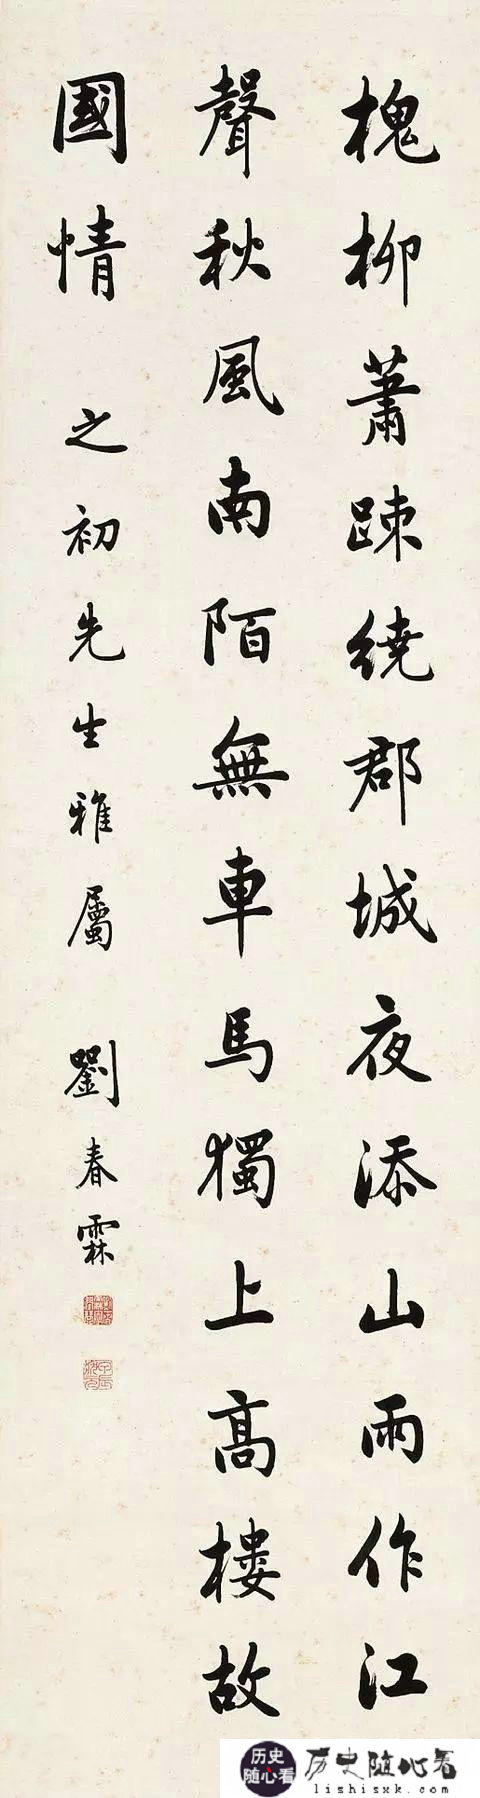 槐柳蕭踈繞郡城夜添山雨作江
聲秋風南陌無車馬獨上髙樓故
國情
之初先生雅屬
劉春霖
历史随心看
历史随心看
lishisxk.com